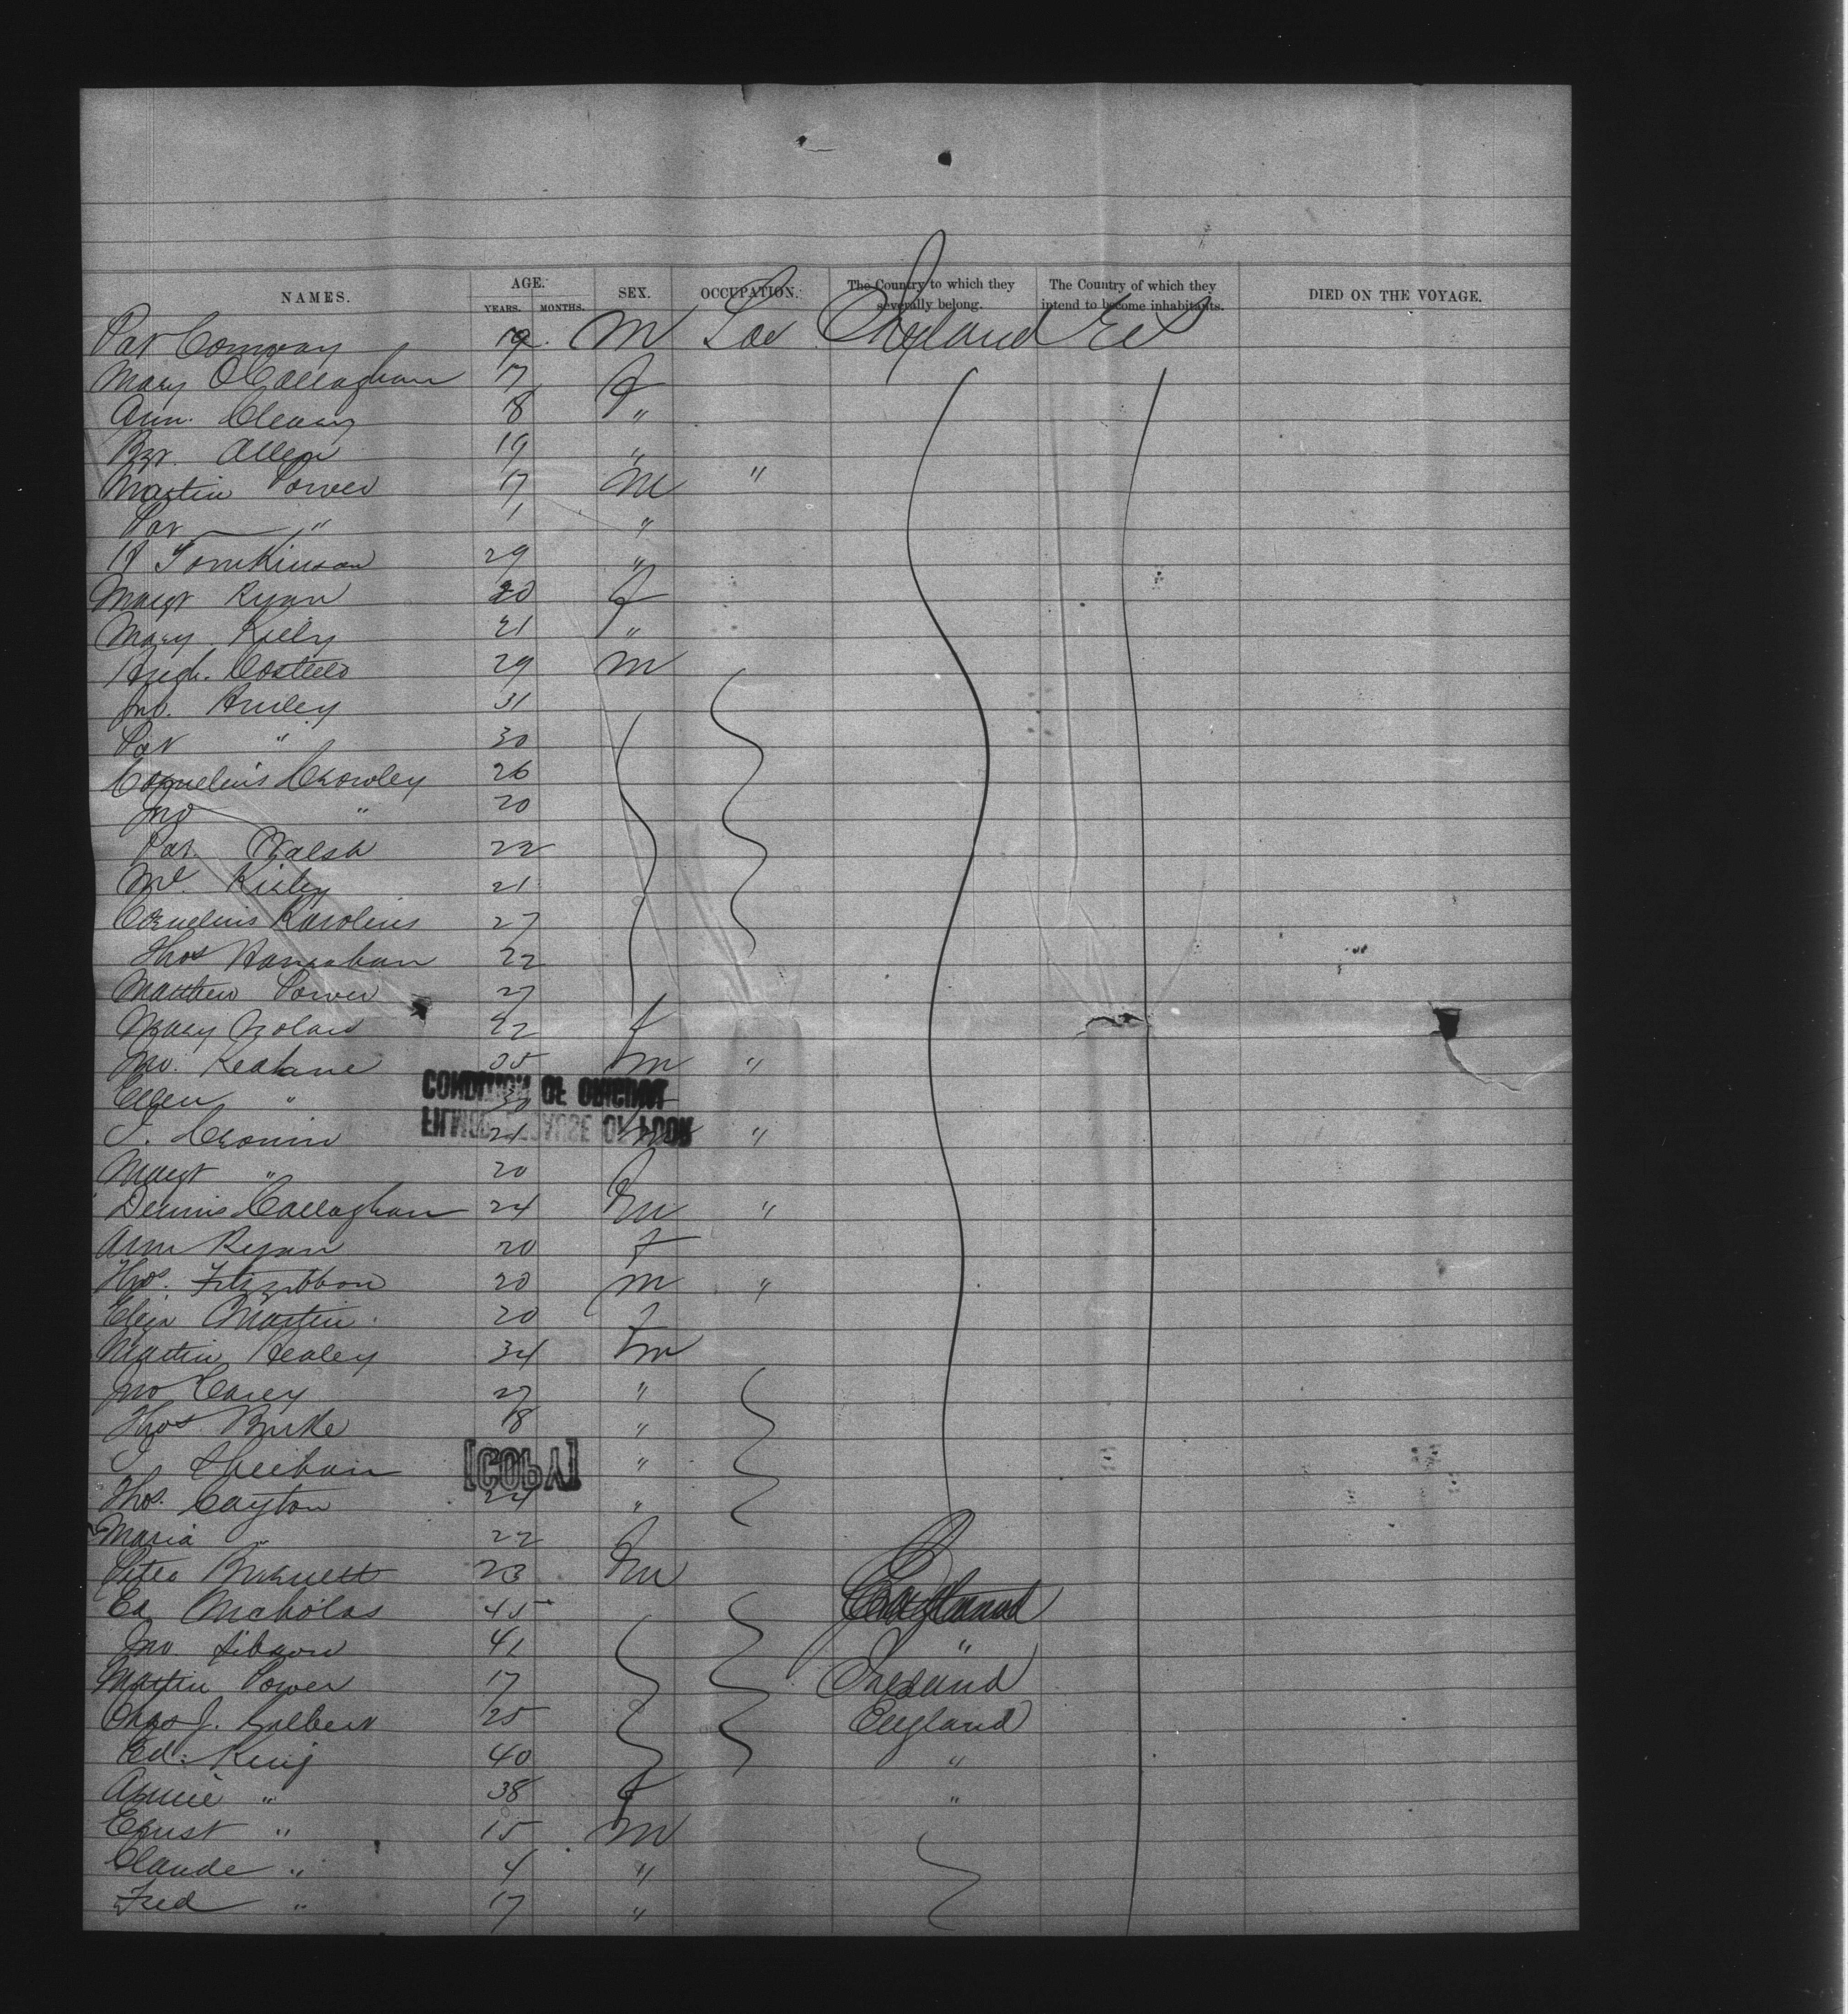 NAMES. AGE. YEARS. MONTHS. SEX. OCCUPATION. The Country to which they severally belong. The Country of which they intend to become inhabitants. DIED ON THE VOYAGE.
Pat Conway 19 M Ireland
Mary O'Callaghan 17 F
Ann. Cleary 18 "
Allen 19 "
Martin Power 17 M "
Pat " 1 "
H Tomkinson 29 "
Margt Ryan 20 F
Mary Kielty 21 "
Hugh. Costello 29 M
Jno. Hurley 31
Pat " 30
Cornelius Crowley 26
Jno " 20
Pat. Walsh 22
Ml. Kirby 21
Cornelius 27
Thos Hanrahan 22
Matthew Power 27
Mary Nolan 22 f
Jno. Keahane 35 m "
Ellen " 30
J. Cronin 21 m "
Margt " 20
Dennis Callaghan 24 m "
Ann Ryan 20 f
Thos. Fitzgibbon 20 m "
Eliza Martin 20 f
Martin Healey 34 m
Jno Carey 27 "
Thos. Burke 18 "
J Sheehan "
[COPY]
Thos. Cayton 24 "
Maria " 22
Peter Burnett 23 m
Ed Nicholas 45 England
Jno. Gibson 41 "
Martin Power 17 Ireland
Chas J. Gilbert 25 England
Ed. King 40 "
Annie " 38 f "
Ernst " 15 M
Claude " 4 "
Fred " 17 "